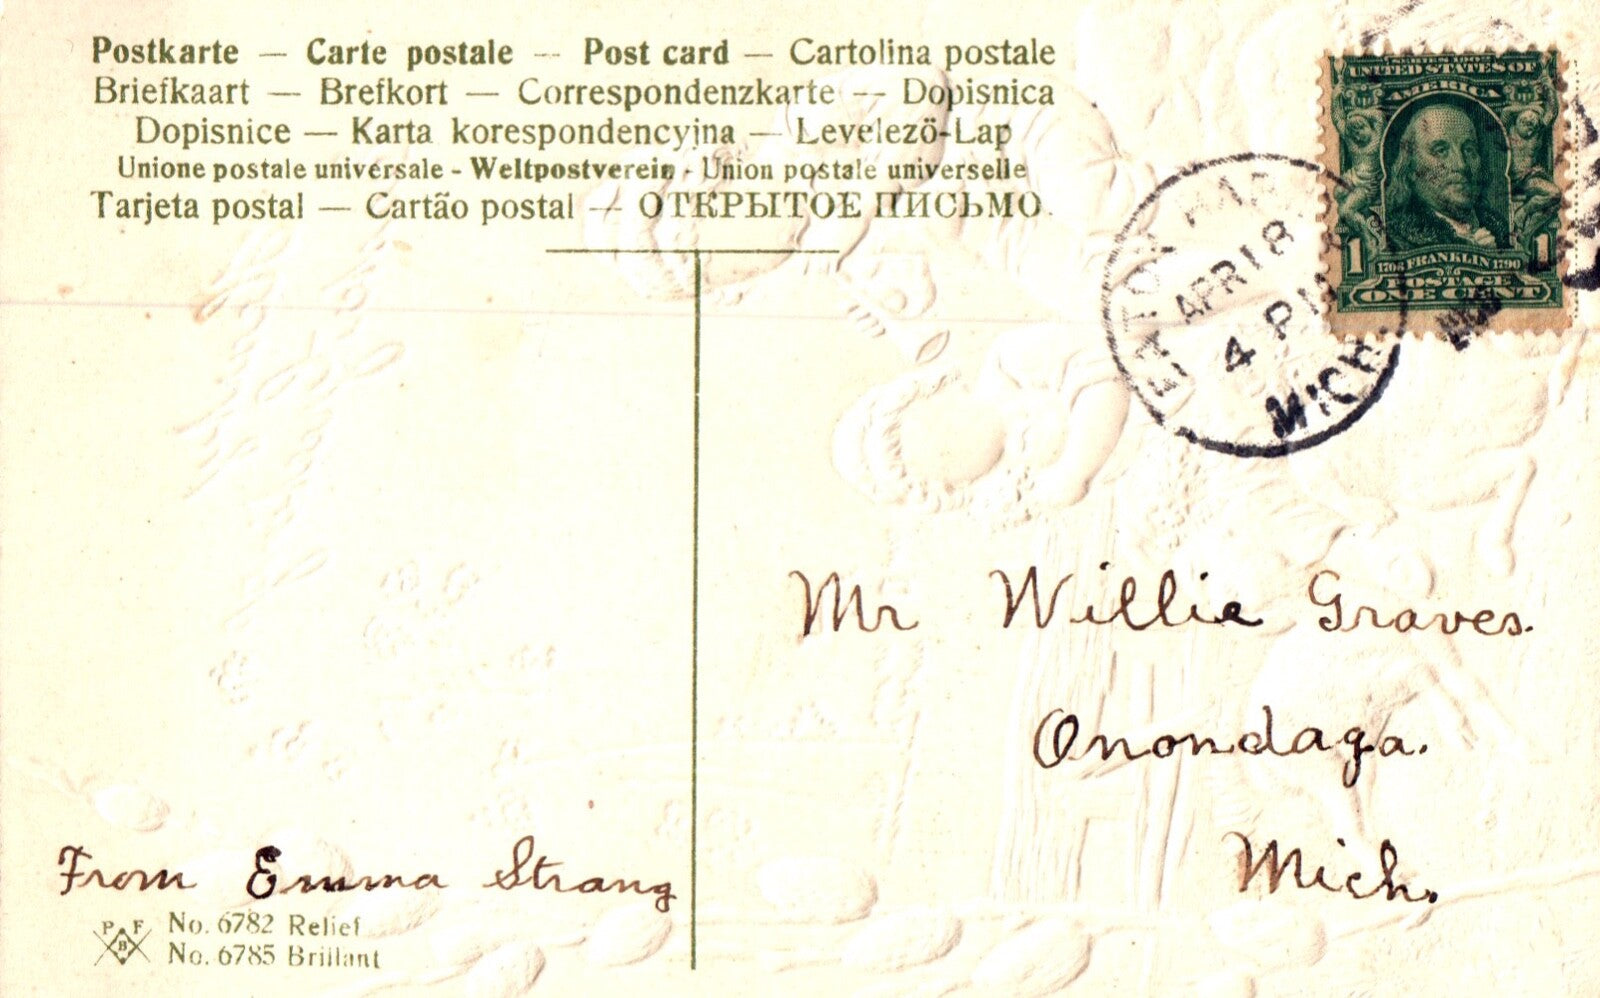 Postkarte — Carte postale — Post card — Cartolina postale
Briefkaart — Brefkort — Correspondenzkarte — Dopisnica
Dopisnice — Karta korespondencyjna — Levelező-Lap
Unione postale universale - Weltpostverein - Union postale universelle
Tarjeta postal — Cartão postal — ОТКРЫТОЕ ПИСЬМО.
UNITED STATES OF
AMERICA
1 1
FRANKLIN 1790
POSTAGE
ONE CENT
EATON
APR 18
4 P
MICH.
Mr Willie Graves.
Onondaga.
Mich.
From Emma Strang
P F
B
No. 6782 Relief
No. 6785 Brillant